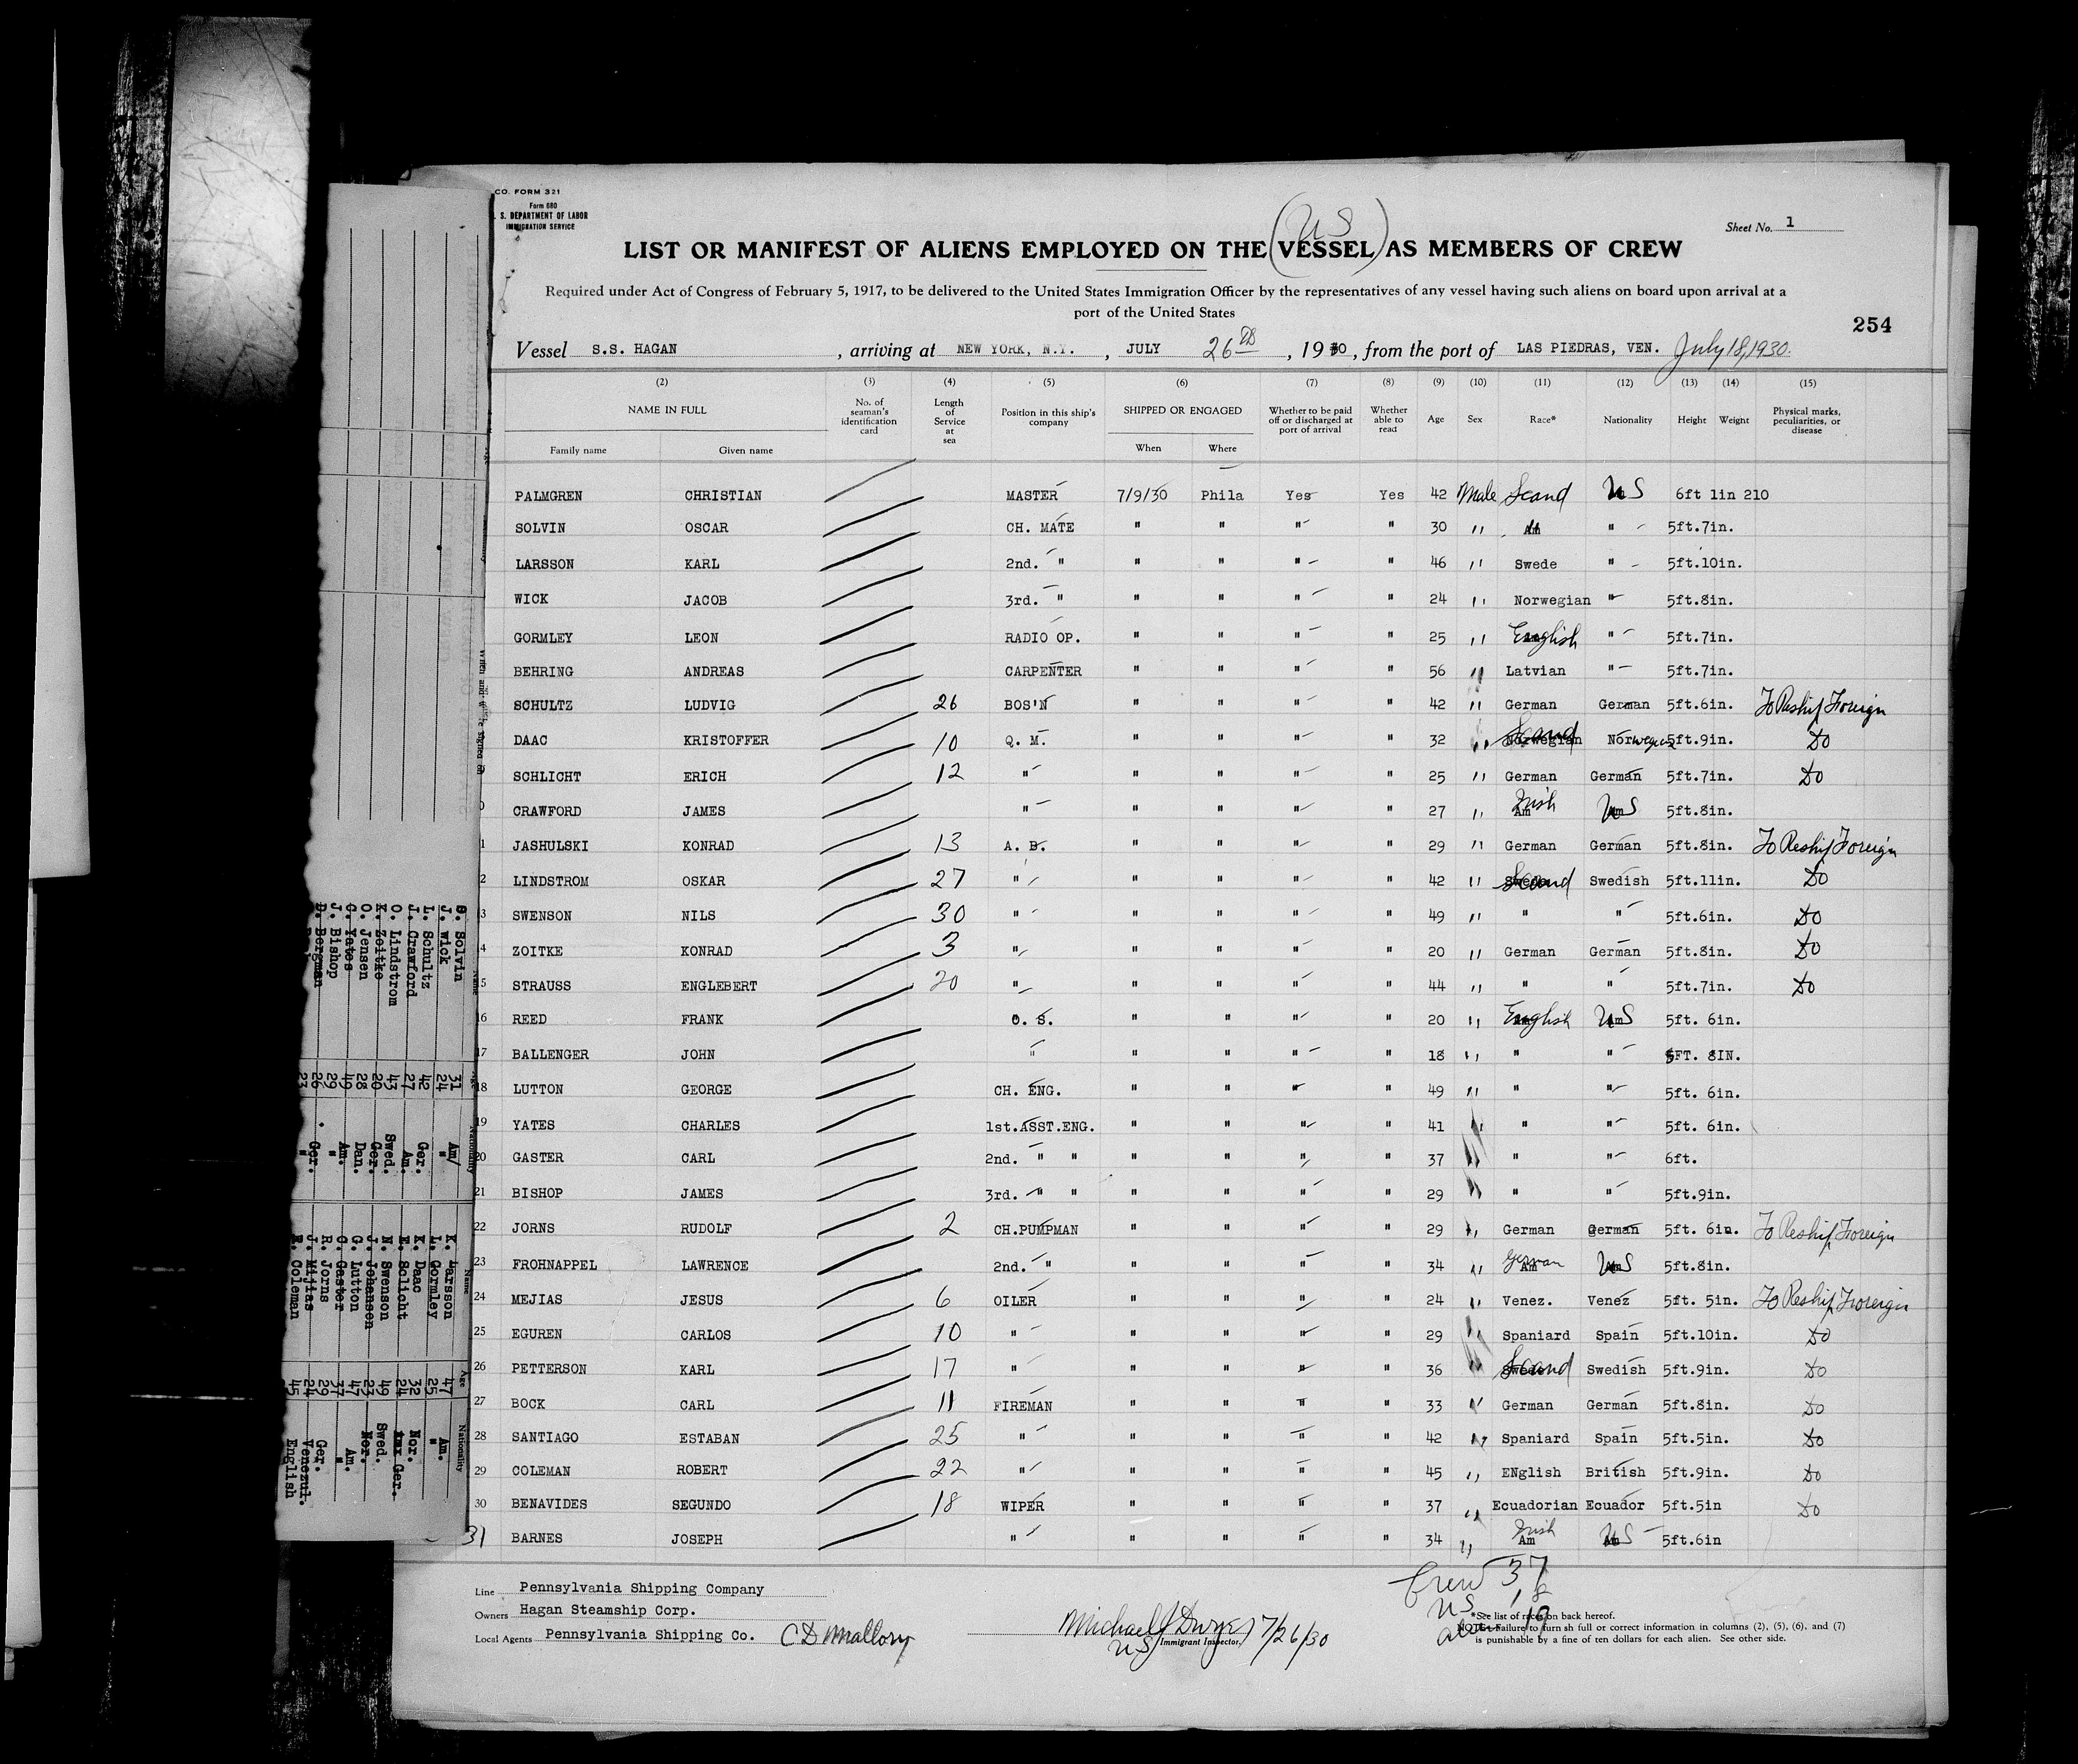 CO. FORM 321
Form 680
S. DEPARTMENT OF LABOR
IMMIGRATION SERVICE
(US)
Sheet No. 1
LIST OR MANIFEST OF ALIENS EMPLOYED ON THE VESSEL AS MEMBERS OF CREW
Required under Act of Congress of February 5, 1917, to be delivered to the United States Immigration Officer by the representatives of any vessel having such aliens on board upon arrival at a
port of the United States
254
Vessel S.S. HAGAN, arriving at NEW YORK, N.Y., JULY 26th, 1930, from the port of LAS PIEDRAS, VEN. July 18, 1930.
(2) (3) (4) (5) (6) (7) (8) (9) (10) (11) (12) (13) (14) (15)
NAME IN FULL No. of seaman's identification card Length of Service at sea Position in this ship's company SHIPPED OR ENGAGED Whether to be paid off or discharged at port of arrival Whether able to read Age Sex Race* Nationality Height Weight Physical marks, peculiarities, or disease
Family name Given name When Where
PALMGREN CHRISTIAN MASTER 7/9/30 Phila Yes Yes 42 Male Scand US 6ft 1in 210
SOLVIN OSCAR CH. MATE " " " " 30 " Am " 5ft.7in.
LARSSON KARL 2nd. " " " " " 46 " Swede " 5ft.10in.
WICK JACOB 3rd. " " " " " 24 " Norwegian " 5ft.8in.
GORMLEY LEON RADIO OP. " " " " 25 " English " 5ft.7in.
BEHRING ANDREAS CARPENTER " " " " 56 " Latvian " 5ft.7in.
SCHULTZ LUDVIG 26 BOS'N " " " " 42 " German German 5ft.6in. To Reship Foreign
DAAC KRISTOFFER 10 Q. M. " " " " 32 " Scand Norwegian 5ft.9in. Do
SCHLICHT ERICH 12 " " " " " 25 " German German 5ft.7in. Do
0 CRAWFORD JAMES " " " " " 27 " Irish US 5ft.8in.
1 JASHULSKI KONRAD 13 A. B. " " " " 29 " German German 5ft.8in. To Reship Foreign
2 LINDSTROM OSKAR 27 " " " " " 42 " Scand Swedish 5ft.11in. Do
3 SWENSON NILS 30 " " " " " 49 " " " 5ft.6in. Do
4 ZOITKE KONRAD 3 " " " " " 20 " German German 5ft.8in. Do
5 STRAUSS ENGLEBERT 20 " " " " " 44 " " " 5ft.7in. Do
16 REED FRANK O. S. " " " " 20 " English US 5ft. 6in.
17 BALLENGER JOHN " " " " " 18 " " " 5FT. 8IN.
18 LUTTON GEORGE CH. ENG. " " " " 49 " " " 5ft. 6in.
19 YATES CHARLES 1st.ASST.ENG. " " " " 41 " " " 5ft. 6in.
20 GASTER CARL 2nd. " " " " " " 37 " " " 6ft.
21 BISHOP JAMES 3rd. " " " " " " 29 " " " 5ft.9in.
22 JORNS RUDOLF 2 CH.PUMPMAN " " " " 29 " German German 5ft. 6in. To Reship Foreign
23 FROHNAPPEL LAWRENCE 2nd. " " " " " 34 " German US 5ft.8in.
24 MEJIAS JESUS 6 OILER " " " " 24 " Venez. Venez 5ft. 5in. To Reship Foreign
25 EGUREN CARLOS 10 " " " " " 29 " Spaniard Spain 5ft.10in. Do
26 PETTERSON KARL 17 " " " " " 36 " Scand Swedish 5ft.9in. Do
27 BOCK CARL 11 FIREMAN " " " " 33 " German German 5ft.8in. Do
28 SANTIAGO ESTABAN 25 " " " " " 42 " Spaniard Spain 5ft.5in. Do
29 COLEMAN ROBERT 22 " " " " " 45 " ENglish British 5ft.9in. Do
30 BENAVIDES SEGUNDO 18 WIPER " " " " 37 " Ecuadorian Ecuador 5ft.5in Do
31 BARNES JOSEPH " " " " " 34 " Irish Am US 5ft.6in
Crew 37
US 18
al 19
Line Pennsylvania Shipping Company
Owners Hagan Steamship Corp.
Local Agents Pennsylvania Shipping Co. C D Mallory
Michael J Dwyer 7/26/30
US Immigrant Inspector.
*See list of races on back hereof.
NOTE.-Failure to furnish full or correct information in columns (2), (5), (6), and (7)
is punishable by a fine of ten dollars for each alien. See other side.
Name Age Nationality Name Age Nationality
O. Solvin 31 Am/ K. Larsson 47 Am.
J. Wick 24 " L. Gormley 25 "
L. Schultz 42 Ger. K. Daac 32 Nor.
J. Crawford 27 Am. E. Sclicht 24 Ger.
O. Lindstrom 43 Swed. N. Swenson 49 Swed.
K. Zoitke 20 Ger. J. Johansen 23 Nor.
O. Jensen 28 Dan. G. Lutton 47 Am.
C. Yates 40 Am. C. Gaster 37 "
J. Bishop 29 " R. Jorns 29 Ger.
B. Bergman 26 Ger. J. Mijias 24 Venezul.
23 " R. Coleman 45 English